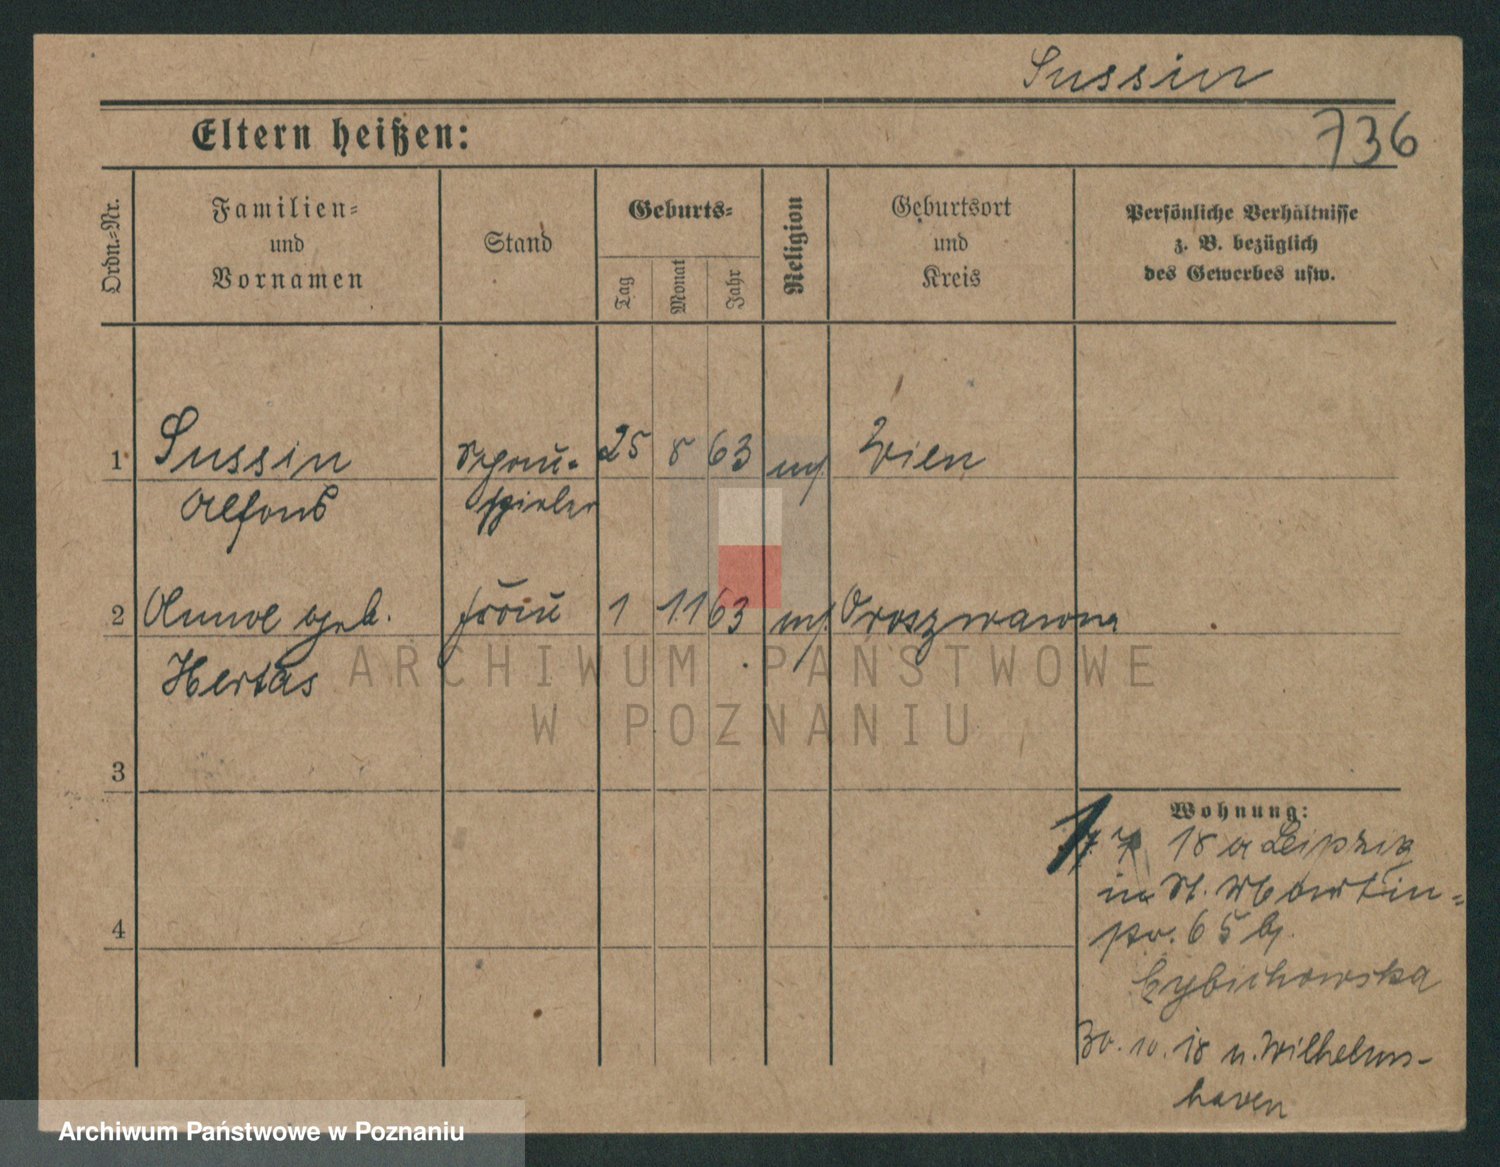 Sussin
Eltern heißen:
736
Ordn.-Nr.
Familien-
und
Vornamen
Stand
Geburts-
Tag
Monat
Jahr
Religion
Geburtsort
und
Kreis
Persönliche Verhältnisse
z. B. bezüglich
des Gewerbes usw.
1 Sussin Schau- 25 8 63 Wien
Alfons spieler
2 geb. Frau 1 11 63
Hertas
3
4
Wohnung:
18 a Leipzig
in St. Martin-
str. 65 b
Cybichowska
30. 10. 18 n. Wilhelms-
haven
ARCHIWUM PAŃSTWOWE
W POZNANIU
Archiwum Państwowe w Poznaniu